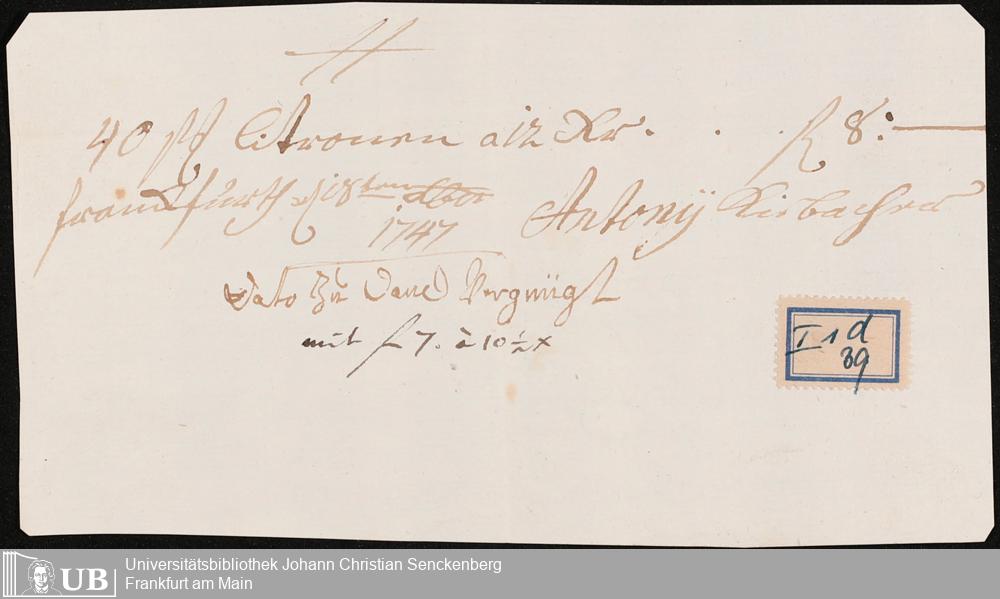 40 Citronen a 12 Xr. . . f 8:
franckfurth d 18ten
1747
Antony
Dato zu Danck Vergnügt
mit f 7. à 10 ½ x
I 1 d
39
UB
Universitätsbibliothek Johann Christian Senckenberg
Frankfurt am Main